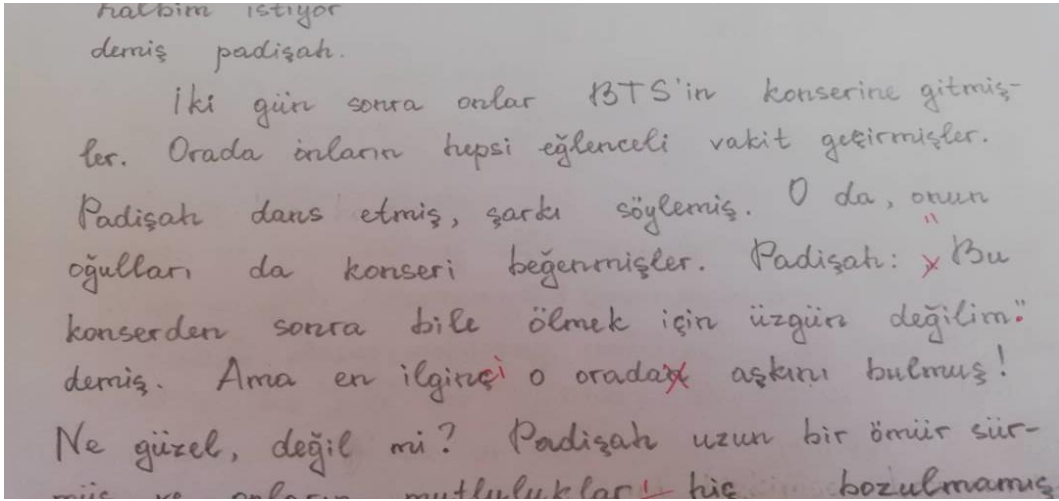 halbim istiyor
demiş padişah.
İki gün sonra onlar BTS'in konserine gitmiş-
ler. Orada onların hepsi eğlenceli vakit geçirmişler.
Padişah dans etmiş, şarkı söylemiş. O da, onun
oğulları da konseri beğenmişler. Padişah: "Bu
konserden sonra bile ölmek için üzgün değilim."
demiş. Ama en ilginçi o orada aşkını bulmuş!
Ne güzel, değil mi? Padişah uzun bir ömür sür-
müş ve onların mutlulukları hiç bozulmamış